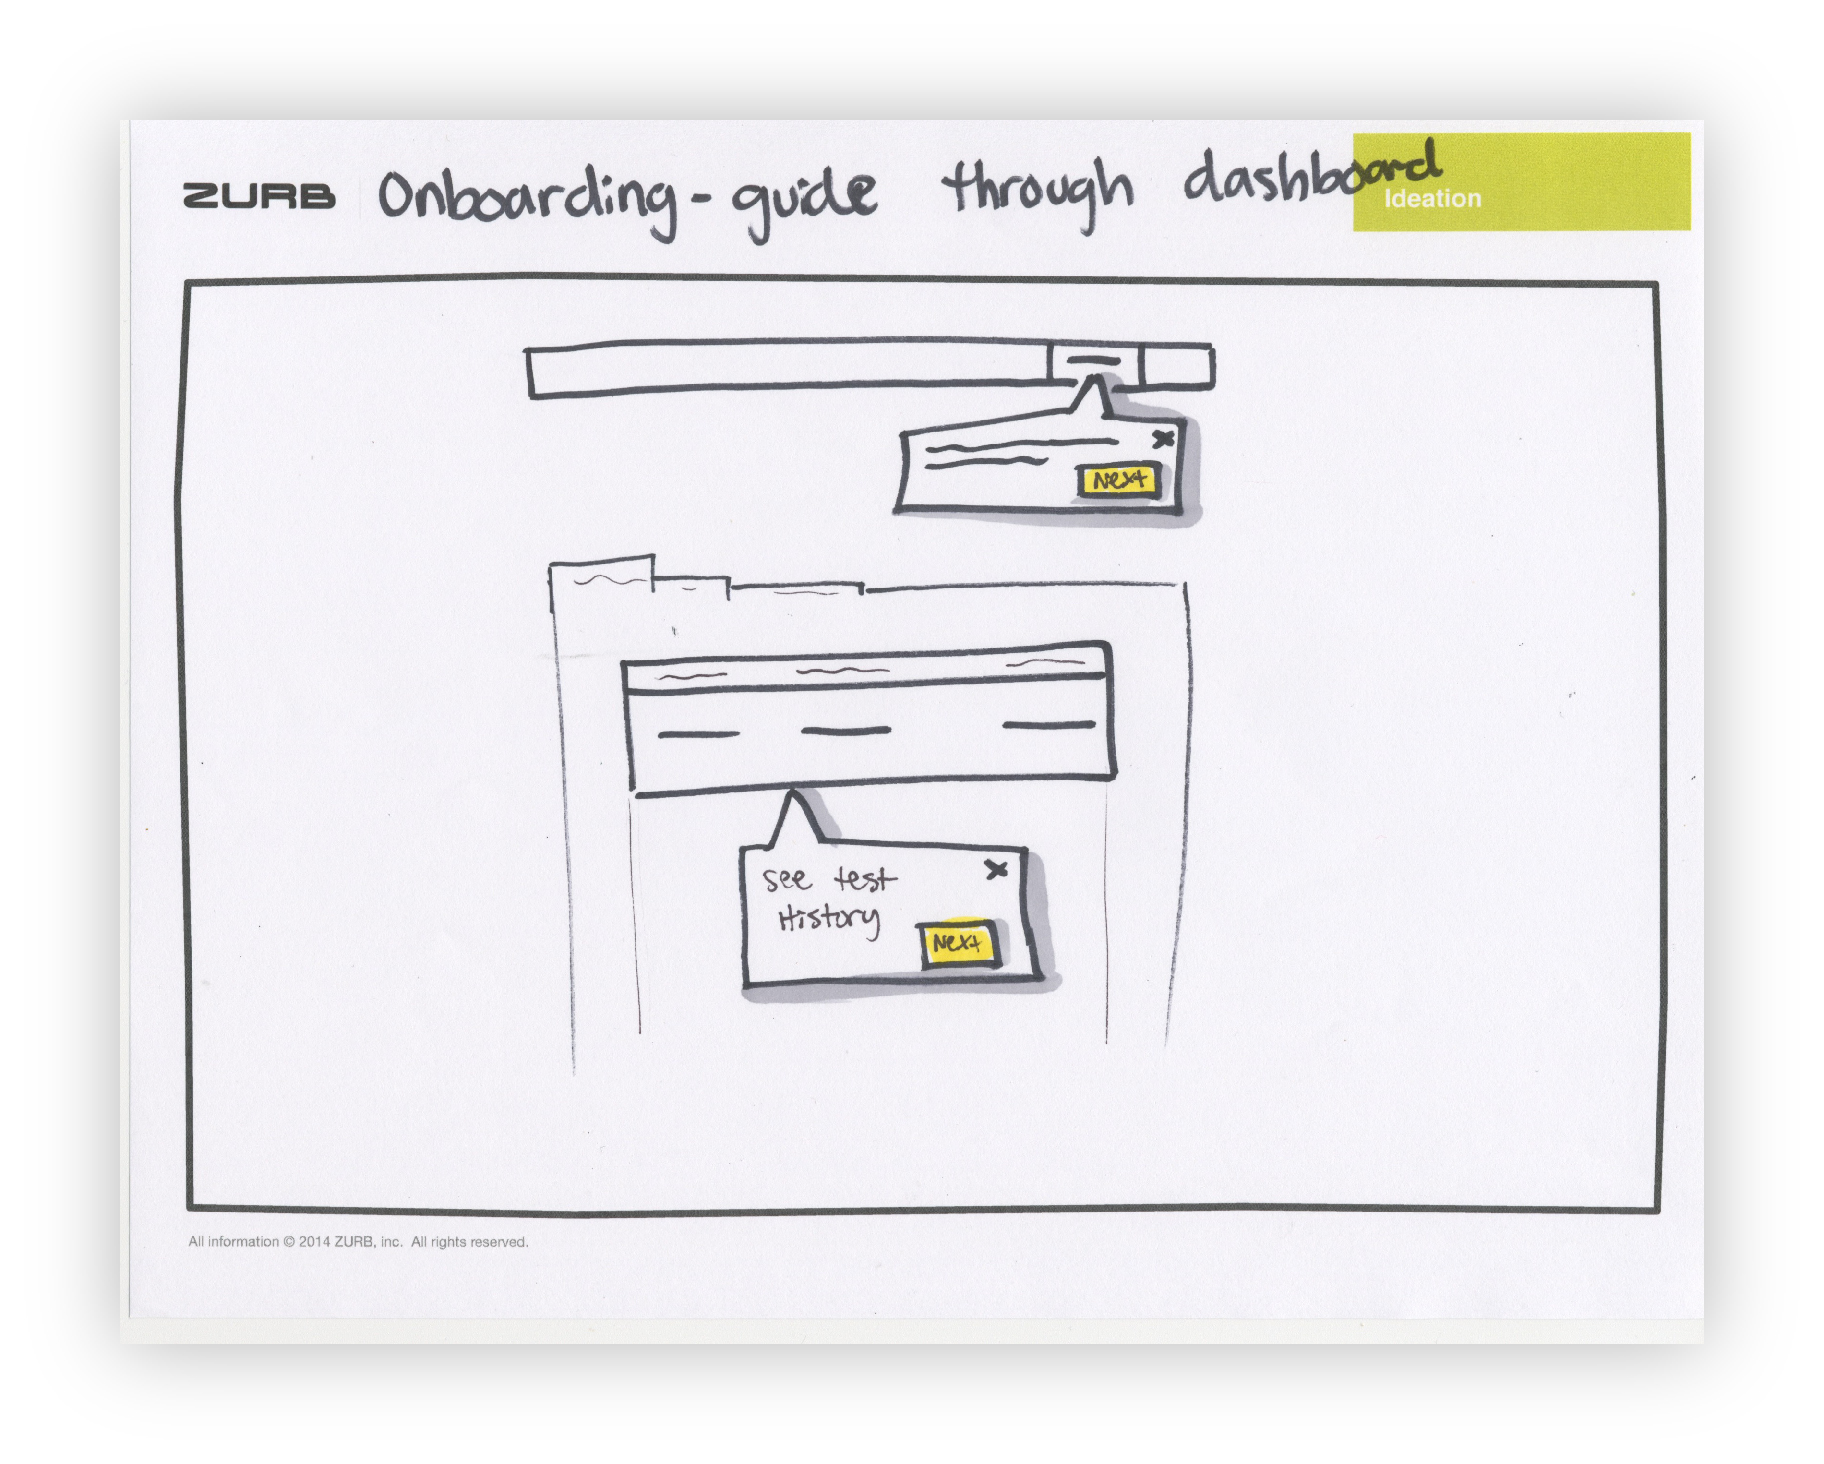 ZURB Onboarding - guide through dashboard
Ideation
X
Next
see test
History
X
Next
All information © 2014 ZURB, inc. All rights reserved.